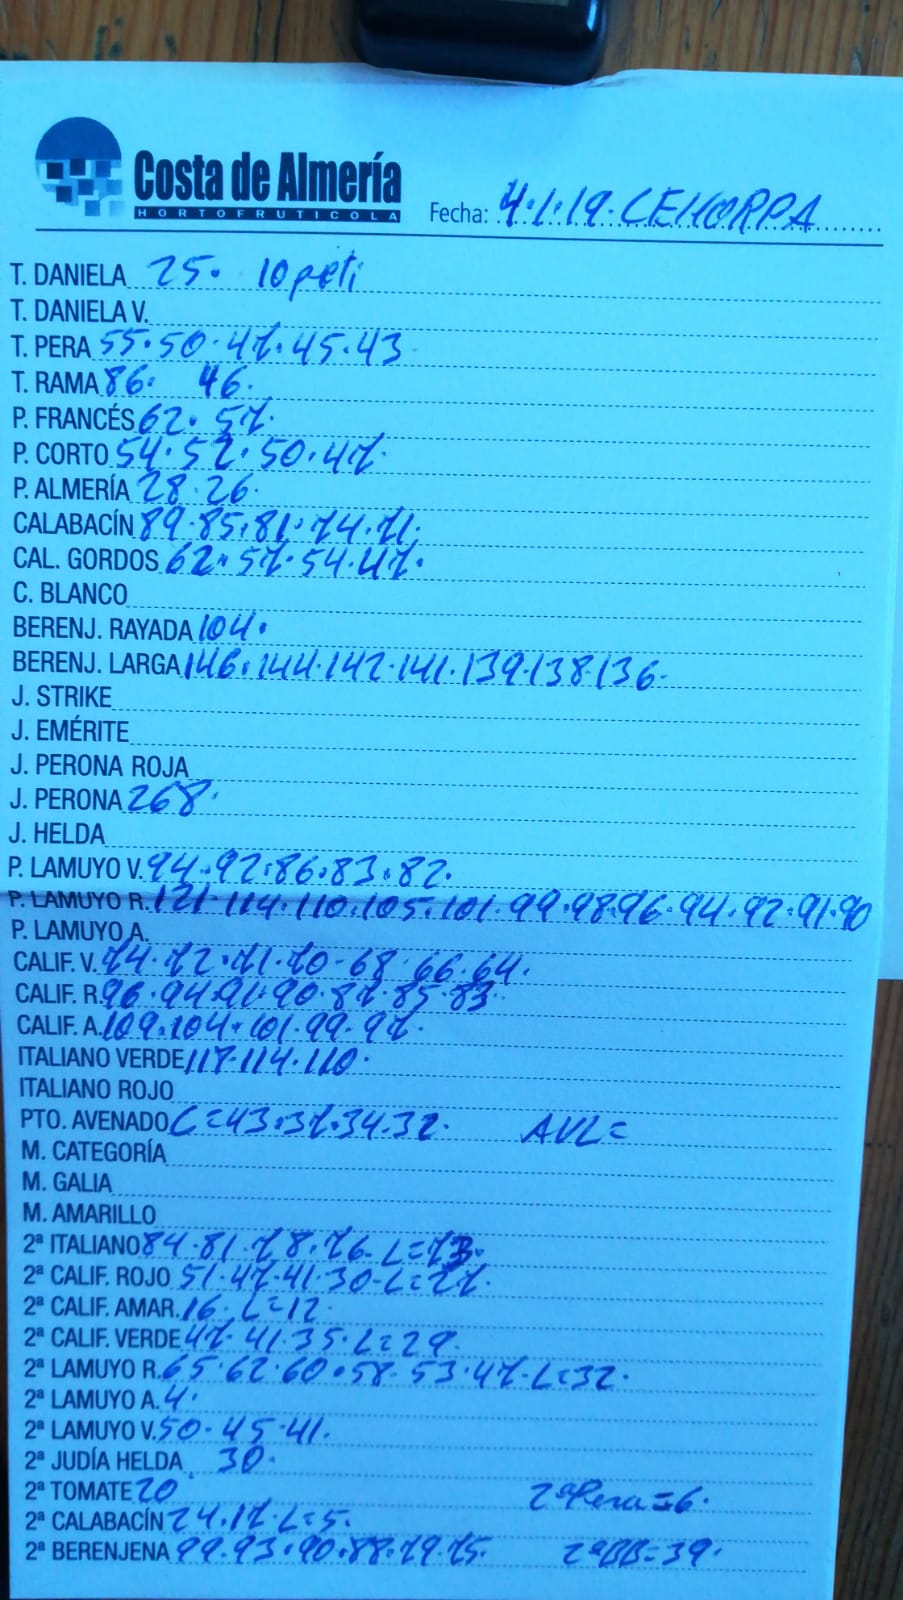 Costa de Almería
HORTOFRUTICOLA
Fecha: 4.1.19. CEHORPA
T. DANIELA 25. 10 peti
T. DANIELA V.
T. PERA 55.50.47.45.43
T. RAMA 86. 46.
P. FRANCÉS 62. 57.
P. CORTO 54.52.50.47.
P. ALMERÍA 28.26.
CALABACÍN 89.85.81.74.71.
CAL. GORDOS 62.57.54.47.
C. BLANCO
BERENJ. RAYADA 104.
BERENJ. LARGA 146.144.142.141.139.138.136.
J. STRIKE
J. EMÉRITE
J. PERONA ROJA
J. PERONA 268.
J. HELDA
P. LAMUYO V. 94.92.86.83.82.
P. LAMUYO R. 121.114.110.105.101.99.98.96.94.92.91.90
P. LAMUYO A.
CALIF. V. 74.72.71.70-68.66.64.
CALIF. R. 96.94.91.90.87.85.83.
CALIF. A. 109.104.101.99.97.
ITALIANO VERDE 117.114.110.
ITALIANO ROJO
PTO. AVENADO C=43.37.34.32. AVL=
M. CATEGORÍA
M. GALIA
M. AMARILLO
2ª ITALIANO 84.81.78.76. L=73.
2ª CALIF. ROJO 51.47.41.30-L=27.
2ª CALIF. AMAR. 16. L=12
2ª CALIF. VERDE 47.41.35.L=29.
2ª LAMUYO R. 65.62.60.58.53.47.L=32.
2ª LAMUYO A. 4.
2ª LAMUYO V. 50.45.41.
2ª JUDÍA HELDA 30.
2ª TOMATE 20 2ª Pera=6.
2ª CALABACÍN 24.17.L=5.
2ª BERENJENA 99.93.90.88.79.75. 2ª BB=39.